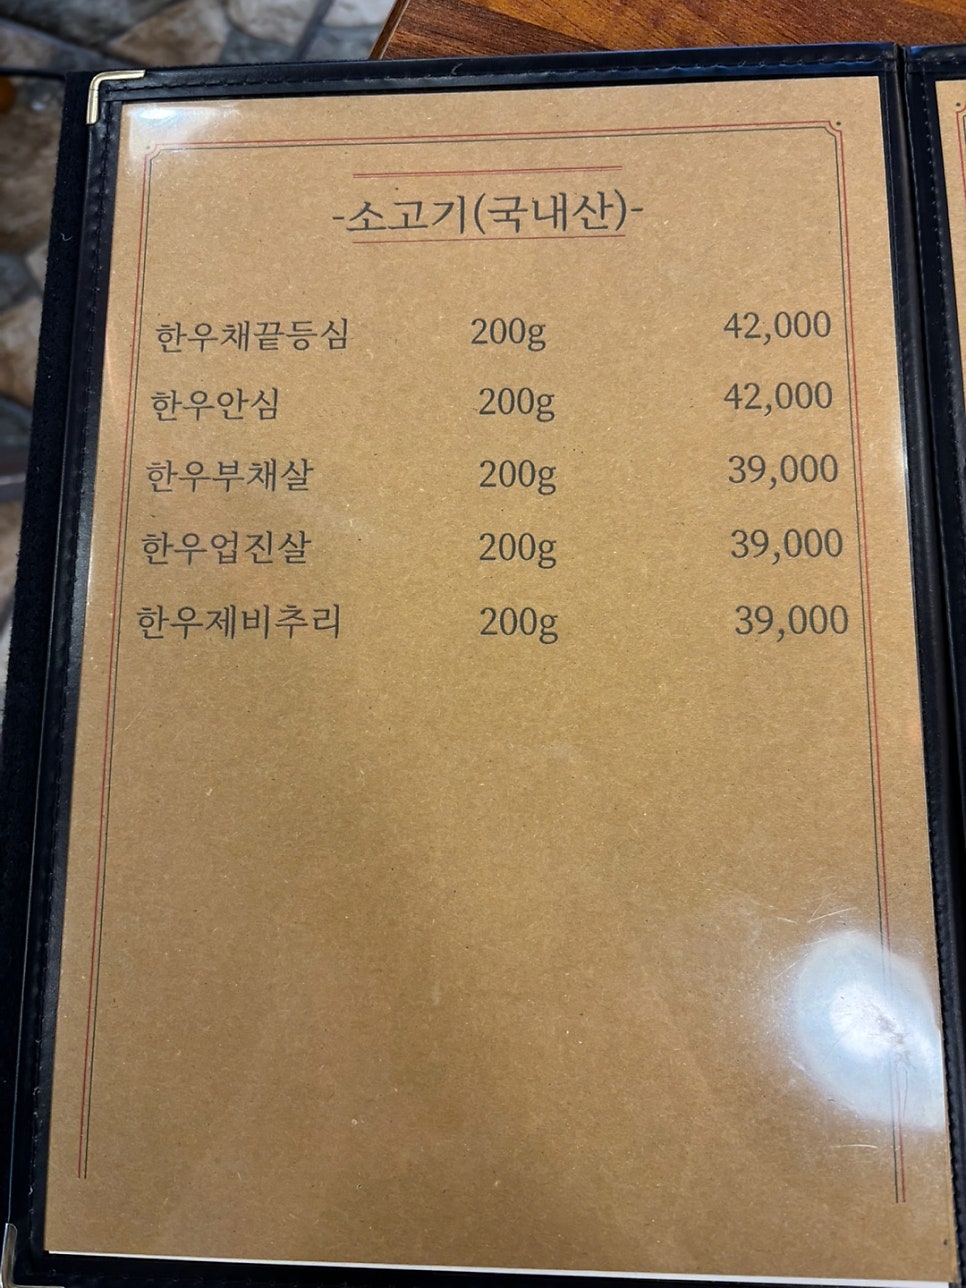 -소고기(국내산)-
한우채끝등심 200g 42,000
한우안심 200g 42,000
한우부채살 200g 39,000
한우업진살 200g 39,000
한우제비추리 200g 39,000